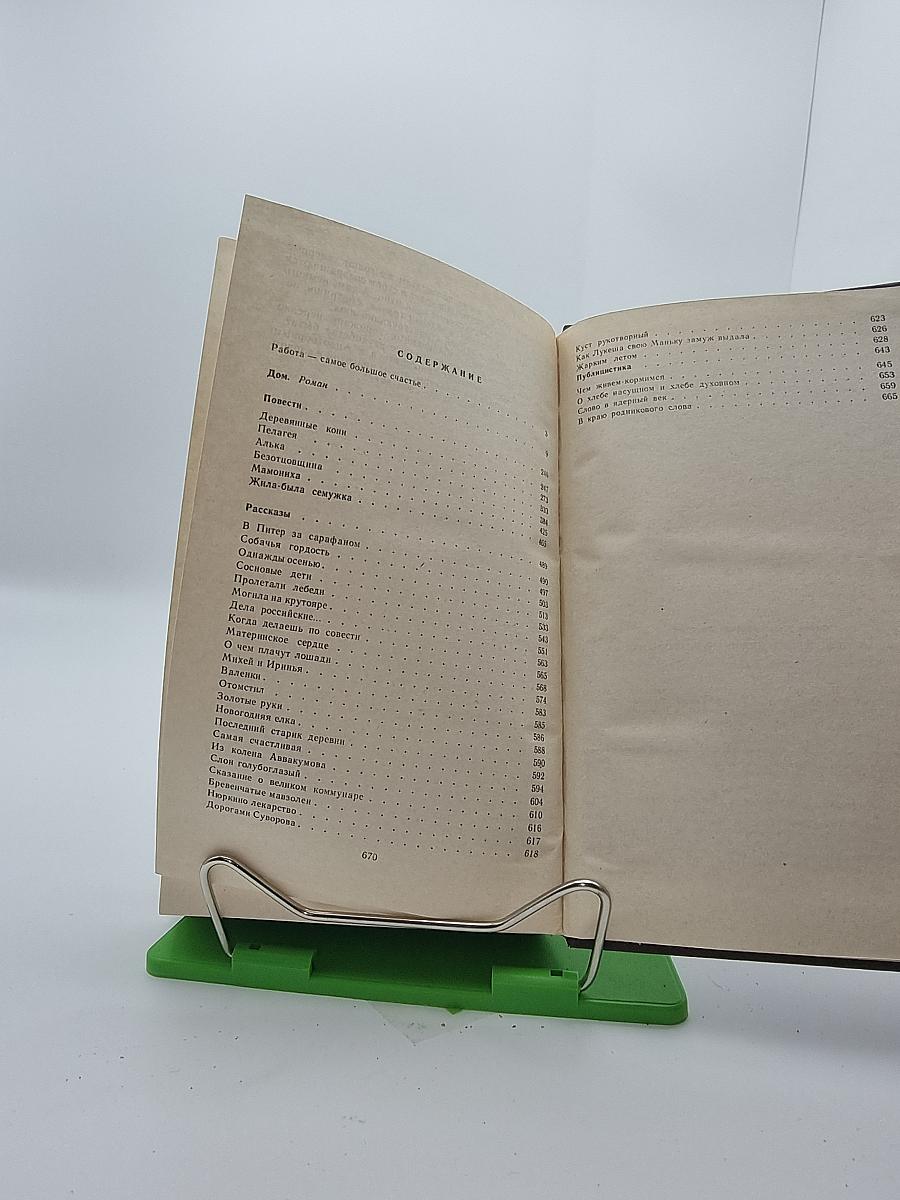 СОДЕРЖАНИЕ
Работа — самое большое счастье . 3
Дом. Роман 9
Повести .
Деревянные кони 247
Пелагея 273
Алька 333
Безотцовщина 384
Мамониха 425
Жила-была семужка
Рассказы 489
В Питер за сарафаном 490
Собачья гордость 497
Однажды осенью . 503
Сосновые дети 513
Пролетали лебеди 533
Могила на крутояре . 543
Дела российские... 551
Когда делаешь по совести 563
Материнское сердце 565
О чем плачут лошади . 568
Михей и Иринья . 574
Валенки . 583
Отомстил 585
Золотые руки 586
Новогодняя елка . 588
Последний старик деревни 590
Самая счастливая 592
Из колена Аввакумова 594
Слон голубоглазый 604
Сказание о великом коммунаре 610
Бревенчатые мавзолеи . 616
Нюркино лекарство 617
Дорогами Суворова . 618
670
Куст рукотворный 623
Как Лукеша свою Маньку замуж выдала . 626
Жарким летом 628
Публицистика 643
Чем живем-кормимся 645
О хлебе насущном и хлебе духовном 653
Слово в ядерный век . 659
В краю родникового слова 665